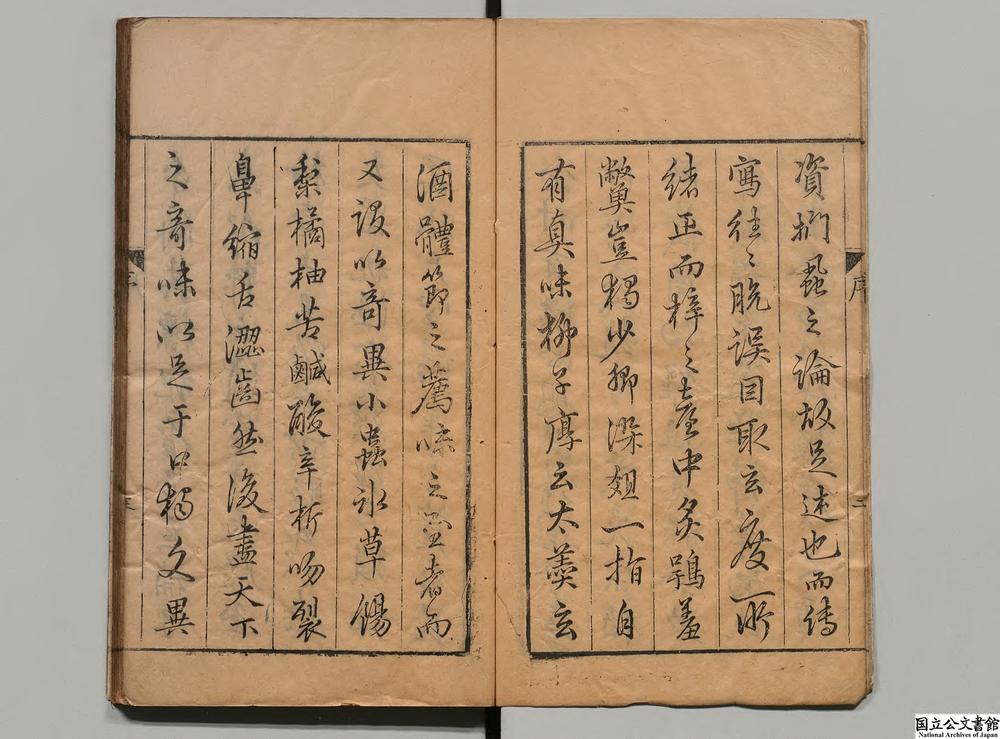 資捫蝨之論故足述也而傳
寫往〻脫誤因取玄度所
緒正而梓之臺中炙鴞羞
豈獨少卿染俎一指自
有真味柳子厚云太羹玄
酒體節之薦味之至者而
又設以奇異小蟲水草楂
梨橘柚苦鹹酸辛蜇吻裂
鼻縮舌澀齒然後盡天下
之奇味以足于口獨文異
序
二
国立公文書館
National Archives of Japan